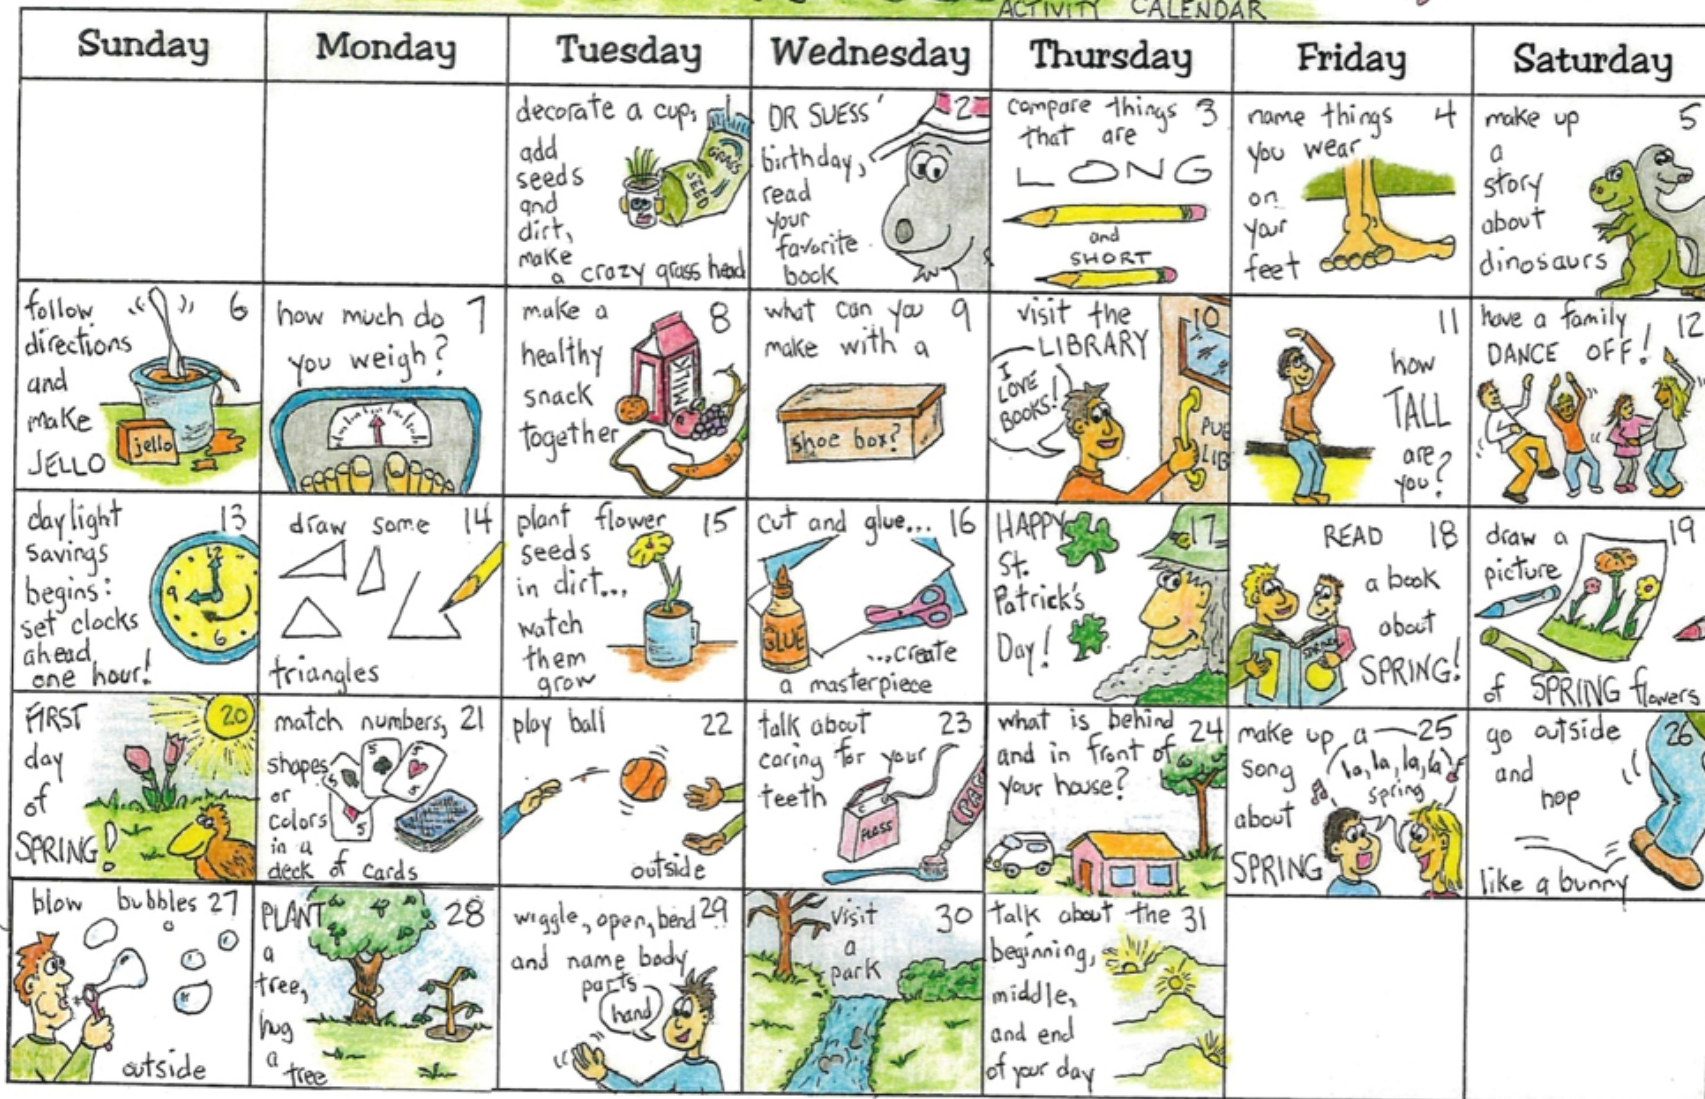 ACTIVITY CALENDAR
Sunday Monday Tuesday Wednesday Thursday Friday Saturday
decorate a cup,
add
seeds
and
dirt,
make
a crazy grass head
GRASS
SEED
2
DR SUESS'
birthday,
read
your
favorite
book
compare things 3
that are
LONG
and
SHORT
name things 4
you wear
on
your
feet
make up 5
a
story
about
dinosaurs
follow 6
directions
and
make
JELLO
jello
how much do 7
you weigh?
make a 8
healthy
snack
together
MILK
what can you 9
make with a
shoe box?
visit the 10
LIBRARY
I
LOVE
BOOKS!
PUB
LIB
11
how
TALL
are
you?
have a family 12
DANCE OFF!
daylight 13
savings
begins:
set clocks
ahead
one hour!
12
9
6
draw some 14
triangles
plant flower 15
seeds
in dirt...
watch
them
grow
cut and glue... 16
GLUE
...create
a masterpiece
HAPPY 17
St.
Patrick's
Day!
READ 18
a book
about
SPRING!
SPRING
draw a 19
picture
of SPRING flowers
FIRST 20
day
of
SPRING!
match numbers, 21
shapes
or
colors
in a
deck of cards
5
5
5
5
play ball 22
outside
talk about 23
caring for your
teeth
FLOSS
what is behind 24
and in front of
your house?
make up a 25
song
about
SPRING
la, la, la, la
spring
go outside 26
and
hop
like a bunny
blow bubbles 27
outside
PLANT 28
a
tree,
hug
a
tree
wiggle, open, bend 29
and name body
parts
hand
visit 30
a
park
talk about the 31
beginning,
middle,
and end
of your day